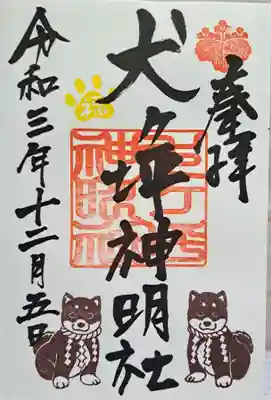 奉拝
犬神明社
令和三年十二月五日
神明社